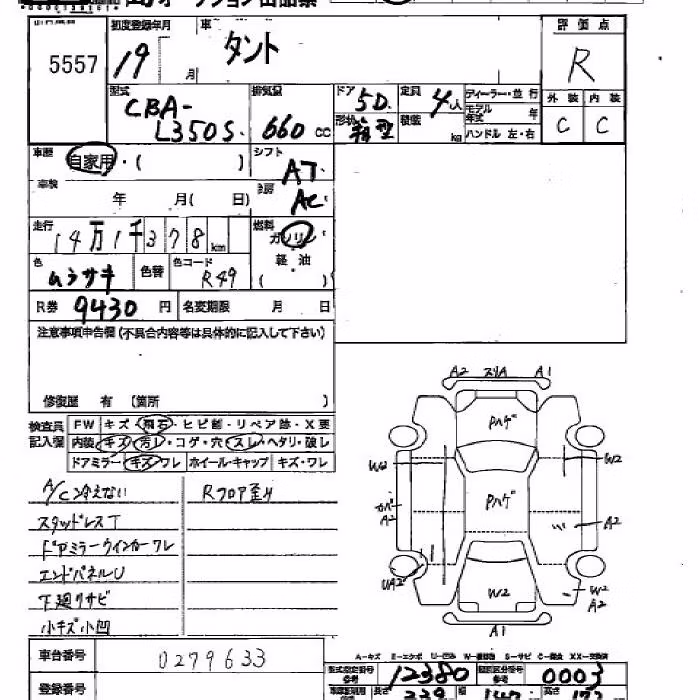 初度登録年月 車 評価点
5557 19 月 タント R
型式 排気量 ドア 定員 ディーラー・並行 外装 内装
CBA- 5D. 4人 モデル年式 年
L350S. 660cc 形状 箱型 積載 kg ハンドル 左・右 C C
車歴 自家用・( ) シフト AT.
車検 年 月( 日) 冷房 AC
走行 14万1千378km 燃料 ガソリン
色 ムラサキ 色替 色コード R49 軽油
( )
R券 9430円 名変期限 月 日
注意事項申告欄(不具合内容等は具体的に記入して下さい)
修復歴 有 (箇所 )
検査員記入欄 FW キズ・飛石・ヒビ割・リペア跡・X要
内装 キズ・汚レ・コゲ・穴・スレ・ヘタリ・破レ
ドアミラー・キズ・ワレ ホイール・キャップ キズ・ワレ
A/C冷えない Rフロア歪ミ
スタッドレスT
ドアミラーウインカーワレ
エンドパネルU
下廻りサビ
小キズ小凹
A2 スリA A1
Pハゲ
W2 W2
Pハゲ
カバ
A2 A2
UA2 W2 W2
A2
A1
車台番号 0279633
登録番号
型式指定番号 12380 類別区分番号 0003
長さ 339 幅 147 高さ